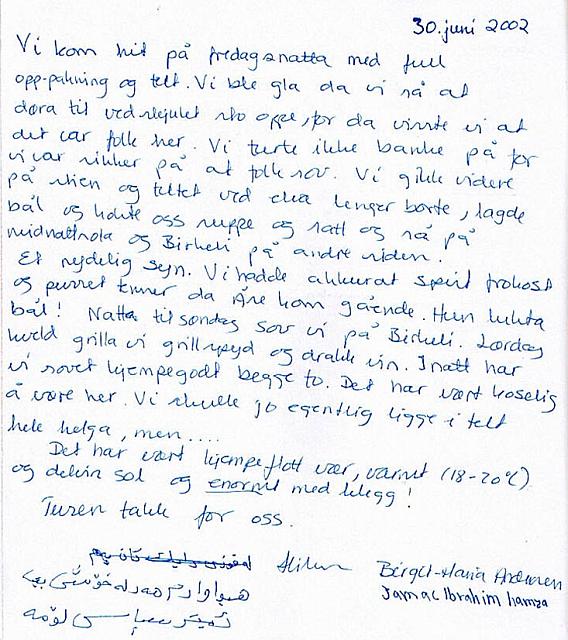 30. juni 2002
Vi kom hit på fredagsnatta med full
opp-pakning og telt. Vi ble gla da vi så at
døra til vedskjulet sto oppe, for da visste vi at
det var folk her. Vi turte ikke banke på for
vi var sikker på at folk sov. Vi gikk videre
på skien og teltet ved elva lenger borte, lagde
bål og kokte oss suppe og satt og så på
midnattsola og Birkeli på andre siden.
Et nydelig syn. Vi hadde akkurat spist frokost
og pusset tenner da Åse kom gående. Hun lukta
bål! Natta til søndag sov vi på Birkeli. Lørdag
kveld grilla vi grillspyd og drakk vin. Inatt har
vi sovet kjempegodt begge to. Det har vært koselig
å være her. Vi skulle jo egentlig ligge i telt
hele helga, men ....
Det har vært kjempeflott vær, varmt (18-20°C)
og delvis sol og enormt med klegg!
Tusen takk for oss.
Birgit-Maria
Jamac Ibrahim hamza